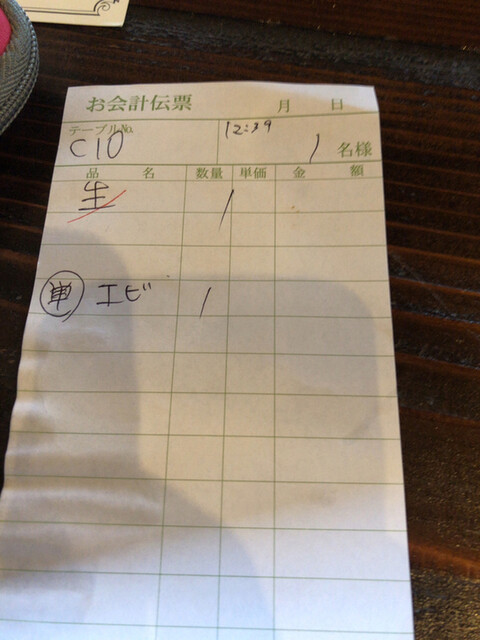 お会計伝票 月 日
テーブルNo. 12:39
C10 1 名様
品 名 数量 単価 金 額
生 1
単 エビ 1